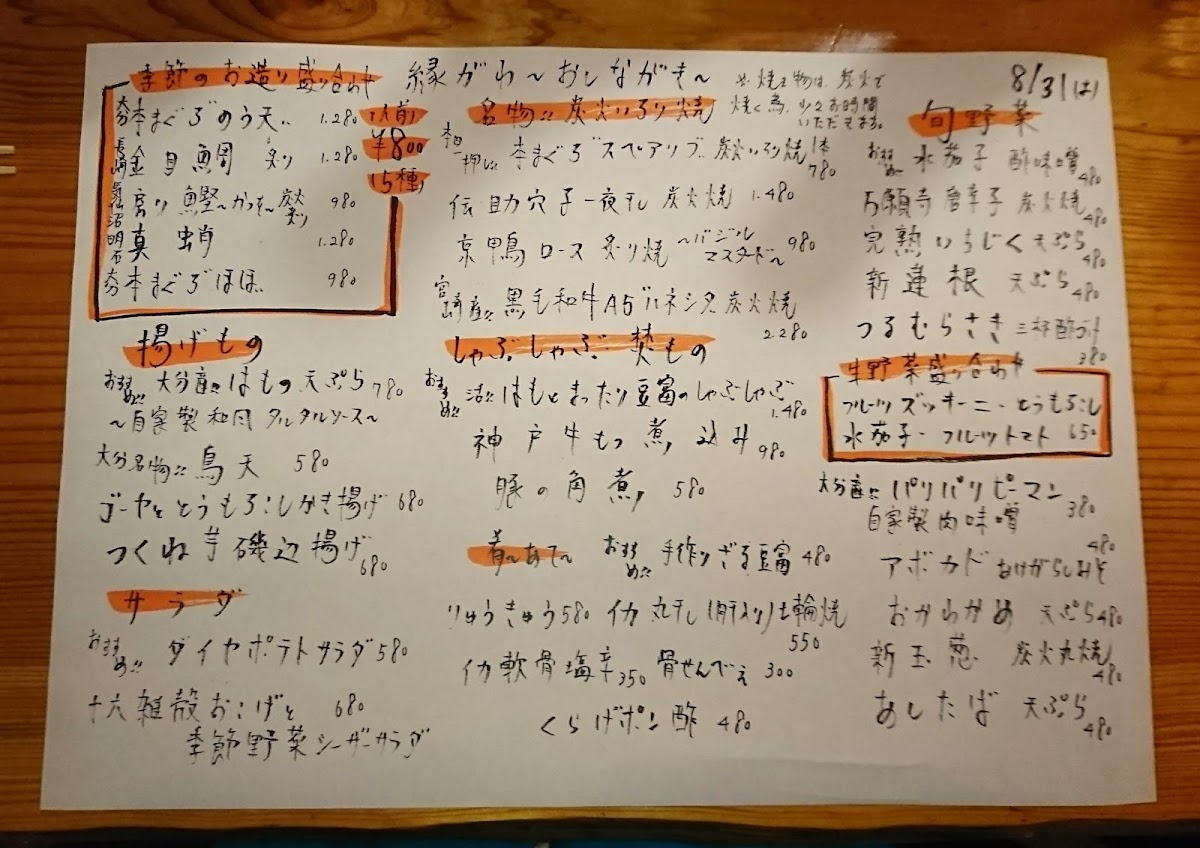 縁がわ〜おしながき〜
8/31(は)
※焼き物は、炭火で
焼く為、少々お時間
いただきます。
季節のお造り盛り合わせ
1人前
¥1800
(5種)
本まぐろのう天 1.280
長崎 金目鯛 炙り 1.280
気仙沼 戻り鰹〜かつを〜炭炙り 980
明石 真蛸 1.280
本まぐろほほ 980
揚げもの
おすすめ!! 大分産!! はもの天ぷら 780
〜自家製和風タルタルソース〜
大分名物!! 鳥天 580
ゴーヤととうもろこしかき揚げ 680
つくね芋磯辺揚げ 680
サラダ
おすすめ!! ダイヤポテトサラダ 580
十六雑穀おこげと 680
季節野菜シーザーサラダ
名物!! 炭火いろり焼
本日一押し!! 本まぐろスペアリブ 炭火いろり焼 1本 780
伝助穴子一夜干し 炭火焼 1.480
京鴨ロース 炙り焼 〜バジルマスタード〜 980
宮崎産!! 黒毛和牛A5ハネシタ 炭火焼
2.280
しゃぶしゃぶ・焚もの
おすすめ!! 活!! はもとまったり豆富のしゃぶしゃぶ
1.480
神戸牛もつ煮込み 980
豚の角煮 580
肴〜あて〜
おすすめ!! 手作りざる豆富 480
りゅうきゅう 580 イカ丸干し(肝入り)七輪焼
550
イカ軟骨塩辛 350 骨せんべえ 300
くらげポン酢 480
旬野菜
おすすめ 水茄子 酢味噌 480
万願寺唐辛子 炭火焼 480
完熟いちじく天ぷら 480
新蓮根 天ぷら 480
つるむらさき 三杯酢ジュレ
380
生野菜盛り合わせ
フルーツズッキーニ・とうもろこし
水茄子・フルーツトマト 650
大分産!! パリパリピーマン 380
自家製肉味噌
アボカド 480
おかわかめ 天ぷら 480
新玉葱 炭火丸焼 480
あしたば 天ぷら 480